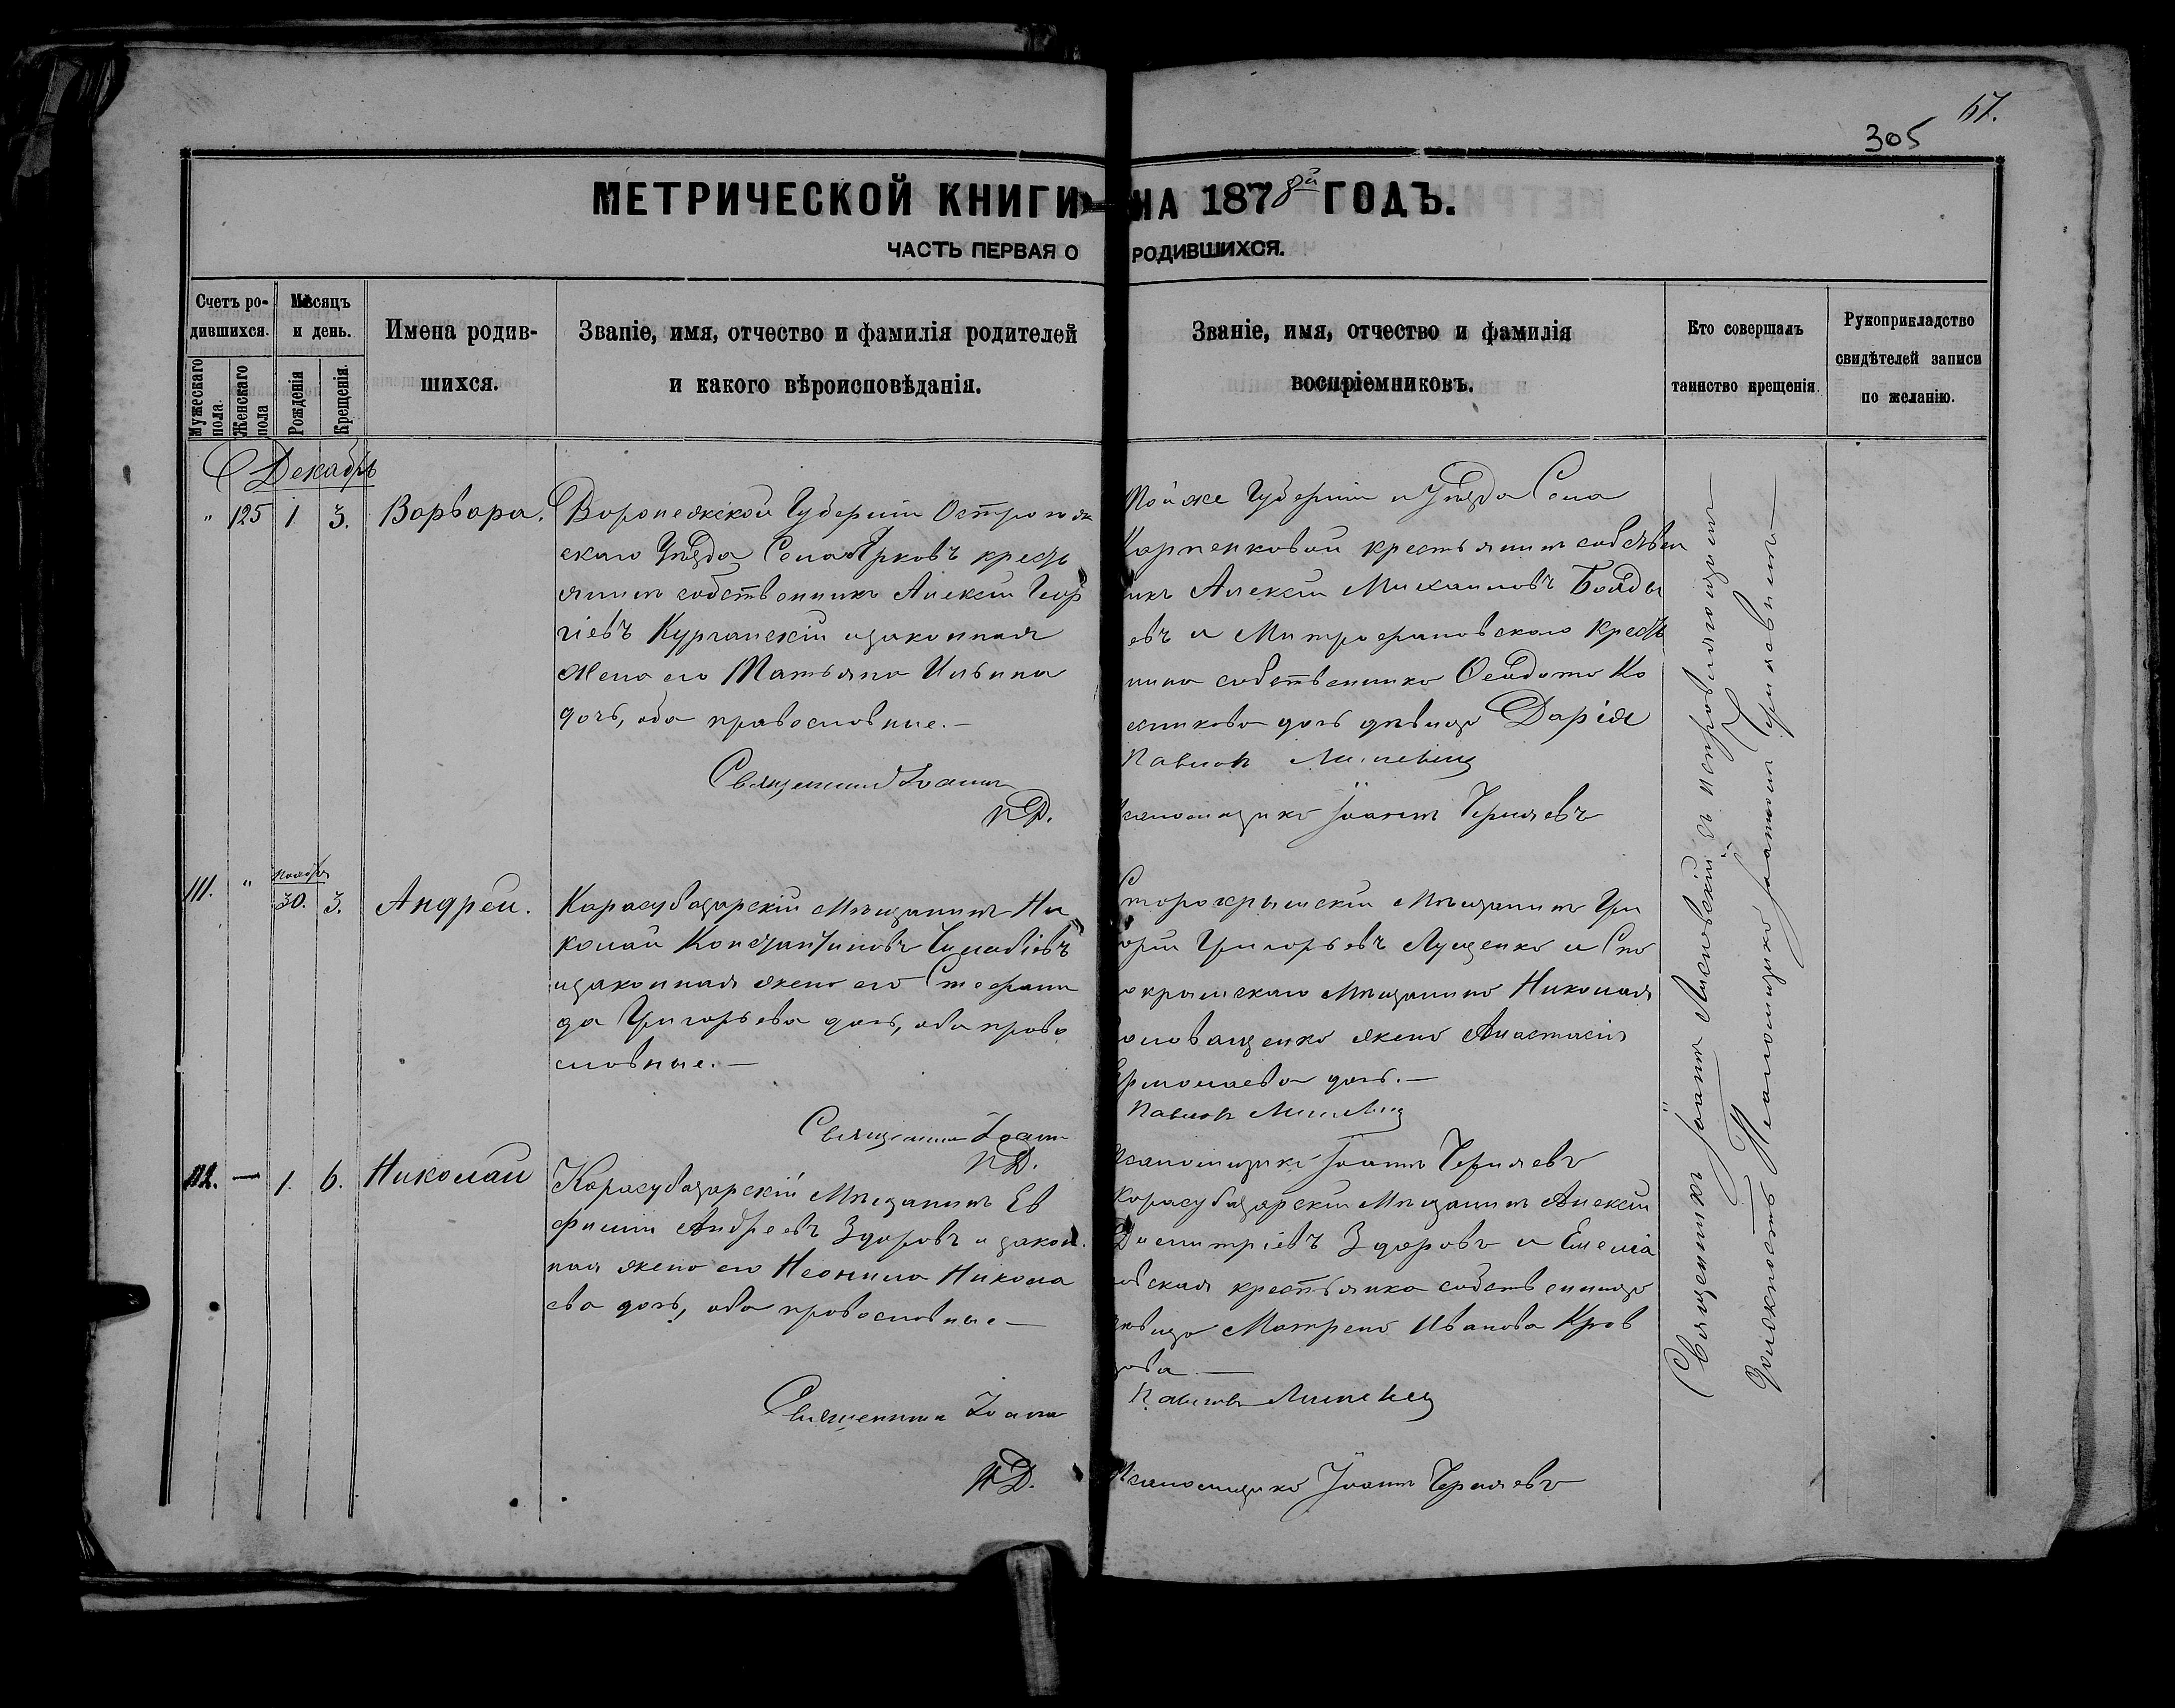 67.
305
МЕТРИЧЕСКОЙ КНИГИ НА 1878й ГОДЪ.
ЧАСТЬ ПЕРВАЯ О РОДИВШИХСЯ.
Счетъ родившихся.
Мужескаго пола.
Женскаго пола
Мѣсяцъ и день.
Рожденія
Крещенія.
Имена родившихся.
Званіе, имя, отчество и фамилія родителей
и какого вѣроисповѣданія.
Званіе, имя, отчество и фамилія
воспріемниковъ.
Кто совершалъ
таинство крещенія.
Рукоприкладство
свидѣтелей записи
по желанію.
Декабрь
" 125 1. 3. Варвара.
Воронежской Губерніи Острогож
скаго Уѣзда Села Ярковъ кресть
янинъ собственникъ Алексій Геор
гіевъ Курганскій и законная
жена его Татьяна Ильина
дочь, оба православные.—
Священникъ Іоанн
П.Д.
Той же Губерніи и Уѣзда Села
Карпенковой крестьянинъ собствен
икъ Алексій Михаиловъ
евъ и Митрофановскаго Кресть
нина собственника Ѳеодота Ко
дочь дѣвица Дарія
Псаломщикъ Іоаннъ Черняевъ
111. " ноября 30. 3. Андрей.
Карасубазарскій Мѣщанинъ Ни
колай Константиновъ
и законная жена его Стефани
да Григорьева дочь, оба право
славные.—
Священникъ Іоанн
П.Д.
Старокрымскій Мѣщанинъ Гри
орій Григорьевъ Луценко и Ста
окрымскаго Мѣщанина Николая
жена Анастасія
Ермолаева дочь.—
Псаломщикъ Іоаннъ Черняевъ
112. — 1. 6. Николай
Карасубазарскій Мѣщанинъ Ев
фимій Андреевъ Здоровъ и закон
ная жена его Неонила Никола
ева дочь, оба православные—
Священникъ Іоанн
П.Д.
Карасубазарскій Мѣщанинъ Алексій
Димитріевъ Здоровъ и
крестьянка собственница
Матрена Иванова Крав
цова.—
Псаломщикъ Іоаннъ Черняевъ
Священникъ Іоаннъ съ исправляющимъ
должность Псаломщика Іоанномъ Черняевымъ—